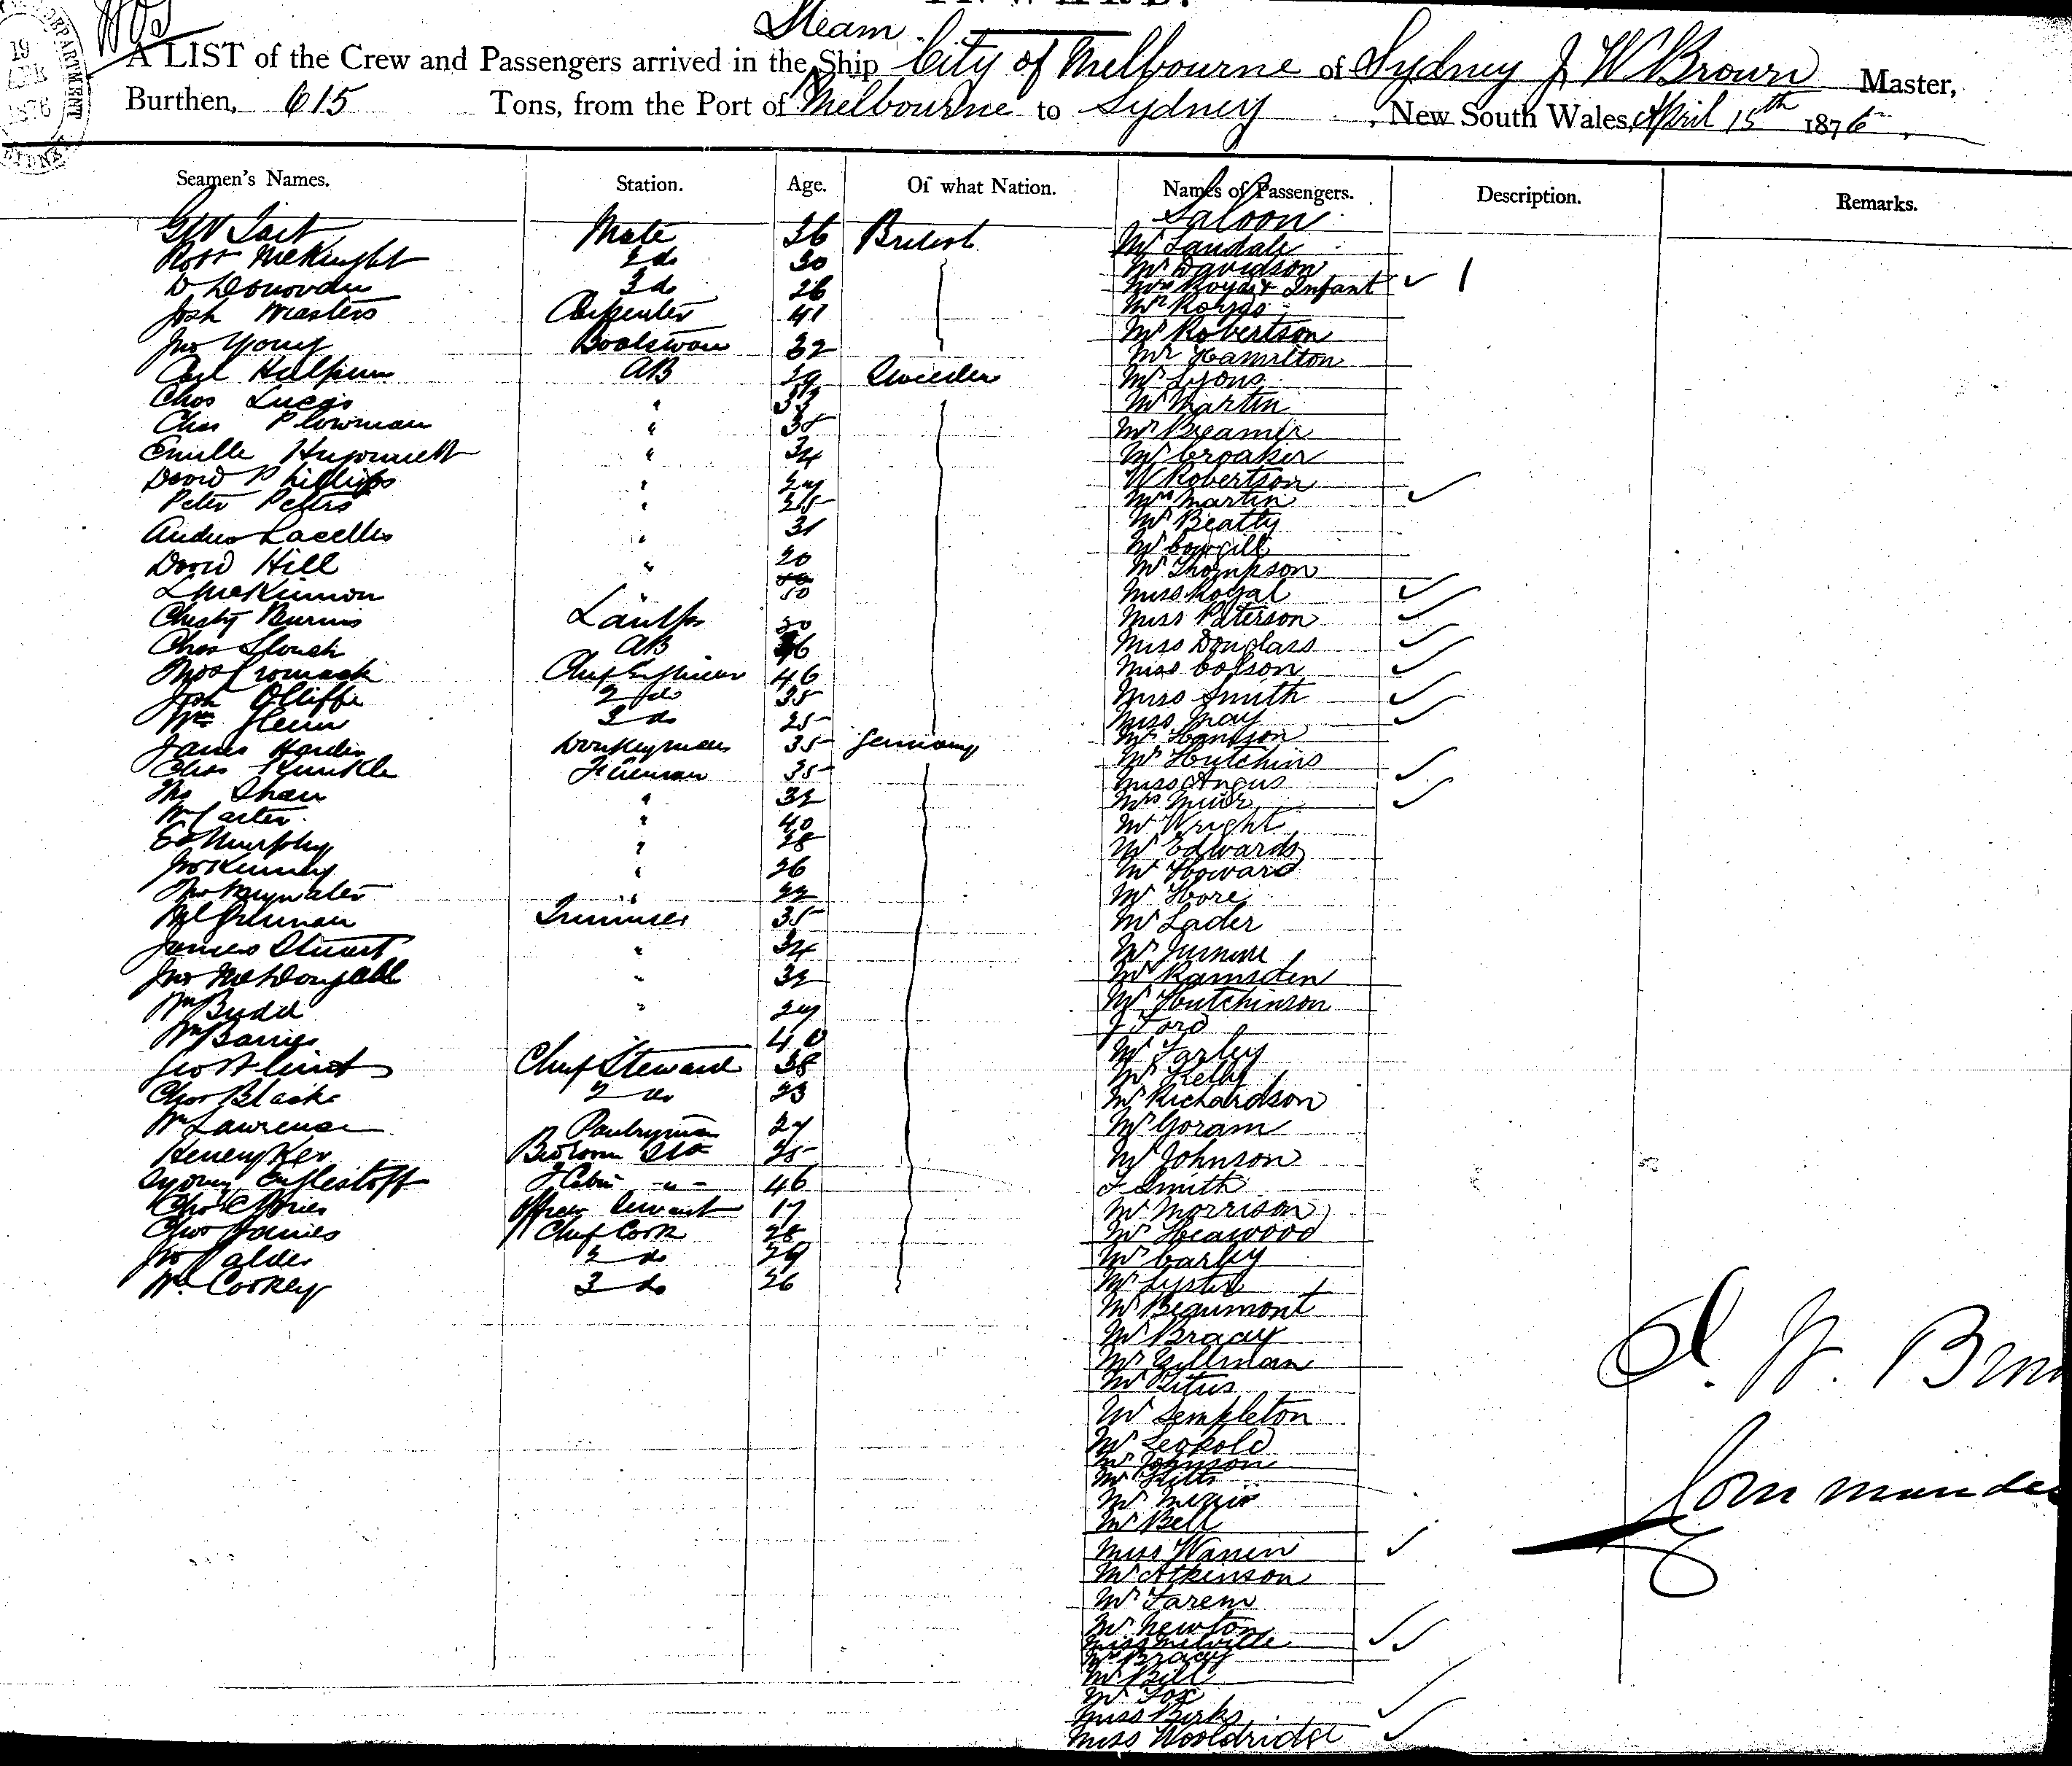 INWARD.
Steam
A LIST of the Crew and Passengers arrived in the Ship City of Melbourne of Sydney J W Brown Master,
Burthen, 615 Tons, from the Port of Melbourne to Sydney, New South Wales, April 15th 1876.
19
1876
DEPARTMENT
Seamen's Names. Station. Age. Of what Nation. Names of Passengers. Description. Remarks.
Saloon
G W Tait Mate 36 British
Robt McKnight 2 do 30
D Donovan 3 do 26
Josh Masters Carpenter 41
Jno Young Boatswain 32
Carl AB 29 Sweeden
Chas Lucas " 33
Chas Plowman " 35
Emille " 34
David Phillips "
Peter Peters " 25
Andrew Lacelles " 31
David Hill " 20
L McKinnon " 50
Christy Burns
Chas AB
Thos Cromack Chief Engineer 46
Josh Olliffe 2 do 35
Wm Glenn 3 do 25
James Harder Donkeyman 35 Germany
Chas Kunkle Fireman 35
Shaw " 32
Wm Carter " 40
Ed Murphy " 28
Jno Kenny " 26
Bywater " 22
Trimmer 35
James Stuart " 34
Jno McDougall " 32
Wm Budd "
Wm 40
Chief Steward 38
Chas Black 2 do 23
Wm Lawrence Pantryman
Henery Ker Bedroom 25
Sydney 46
Chas Servant 17
Chas James Chief Cook 28
Jno Calder 2 do 29
Wm Corkey 3 do 26
Mr Landale
Mr Davidson
Mrs Royds & Infant 1
Mr Royds
Mr Robertson
Mr Hamilton
Mr Lyons
Mr Martin
Mr Breamer
Mr Croaker
W Robertson
Mrs Martin
Mr Beatty
Mr Cowgill
Mr Thompson
Miss Royal
Miss Paterson
Miss Douglass
Miss Colson
Miss Smith
Miss May
Mr Hanson
Mr Hutchins
Miss Angus
Mrs Muir
Mr Wright
Mr Edwards
Mr Howard
Mr Hore
Mr Lader
Mr
Mr Ramsden
Mr Hutchinson
J Ford
Mr Farley
Mr Kelly
Mr Richardson
Mr Goram
Mr Johnson
J Smith
Mr Morrison
Mr Heawood
Mr Carley
Mr Lyster
Mr Beaumont
Mr Brady
Mr Gillman
Mr Titus
Mr Templeton
Mr Leopold
Mr Johnson
Mr
Mr
Mr Bell
Miss Warren
Mr Atkinson
Mr Farem
Mr Newton
Miss Melville
Mr Brady
Mr Bill
Mr Fox
Miss Birks
Miss Wooldridge
J. W. Brown
Commander